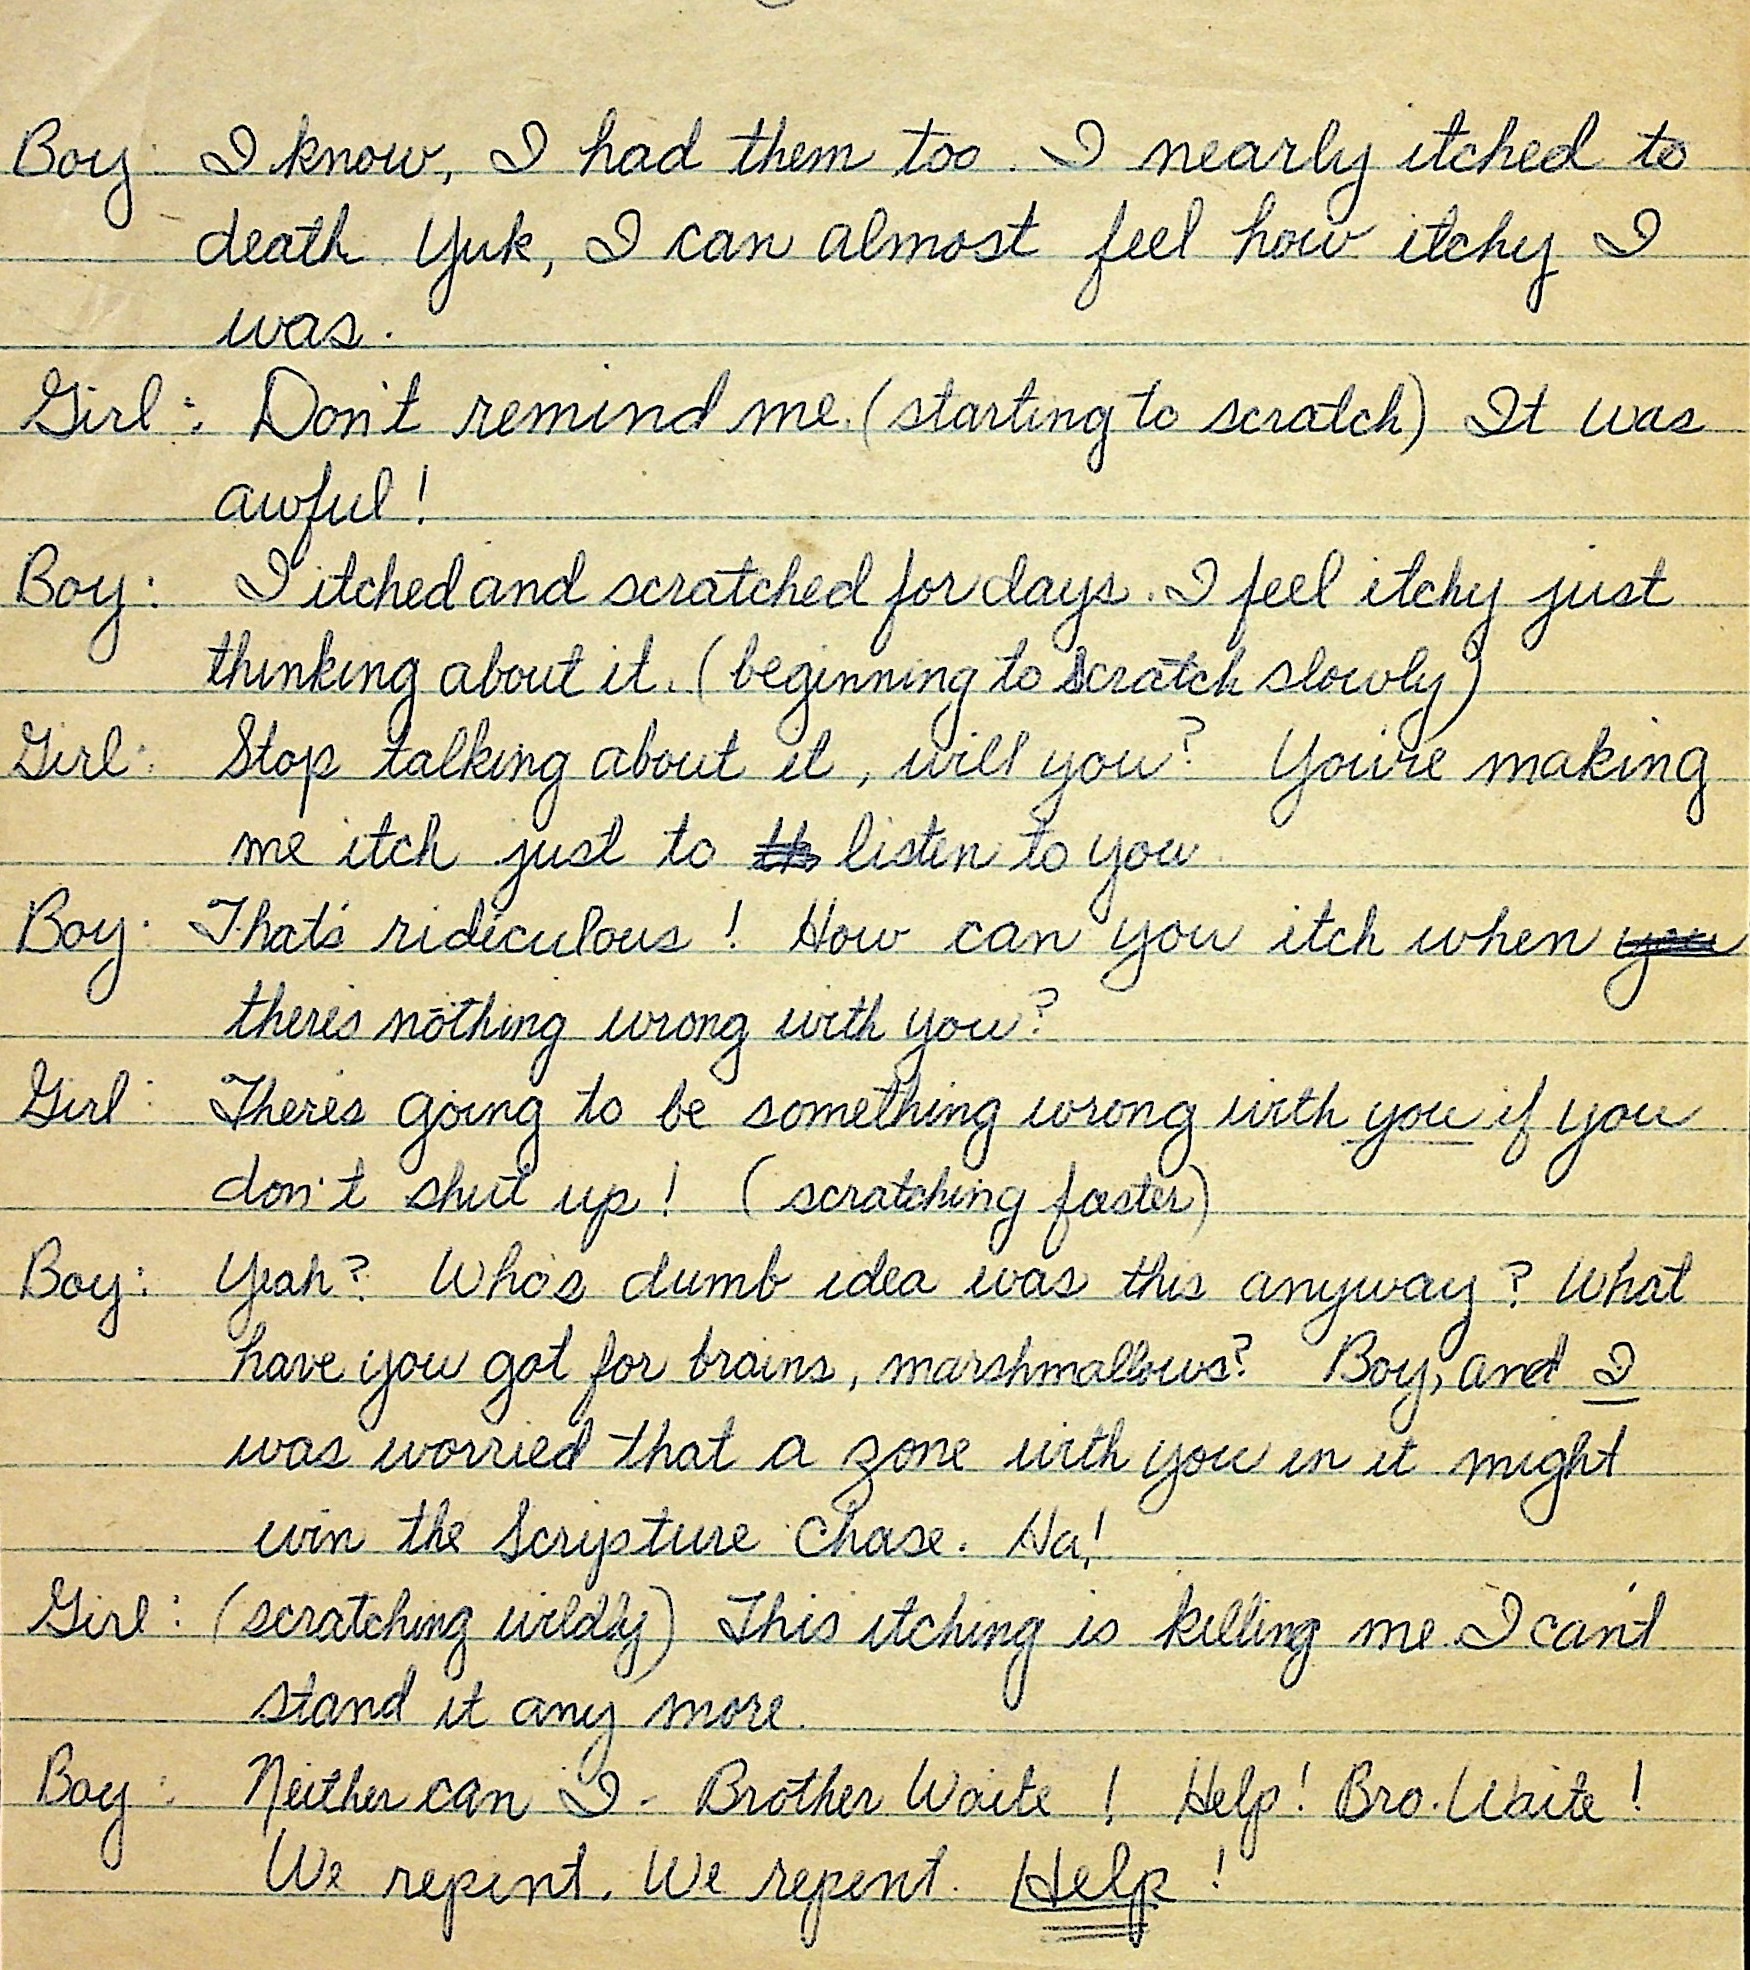 Boy: I know, I had them too. I nearly itched to
death. Yuk, I can almost feel how itchy I
was.
Girl: Don't remind me. (starting to scratch) It was
awful!
Boy: I itched and scratched for days. I feel itchy just
thinking about it. (beginning to scratch slowly)
Girl: Stop talking about it, will you? You're making
me itch just to listen to you.
Boy: That's ridiculous! How can you itch when you
there's nothing wrong with you?
Girl: There's going to be something wrong with you if you
don't shut up! (scratching faster)
Boy: Yeah? Who's dumb idea was this anyway? What
have you got for brains, marshmallows? Boy, and I
was worried that a zone with you in it might
win the Scripture Chase. Ha!
Girl: (scratching wildly) This itching is killing me. I can't
stand it any more.
Boy: Neither can I - Brother Waite! Help! Bro. Waite!
We repent. We repent. Help!